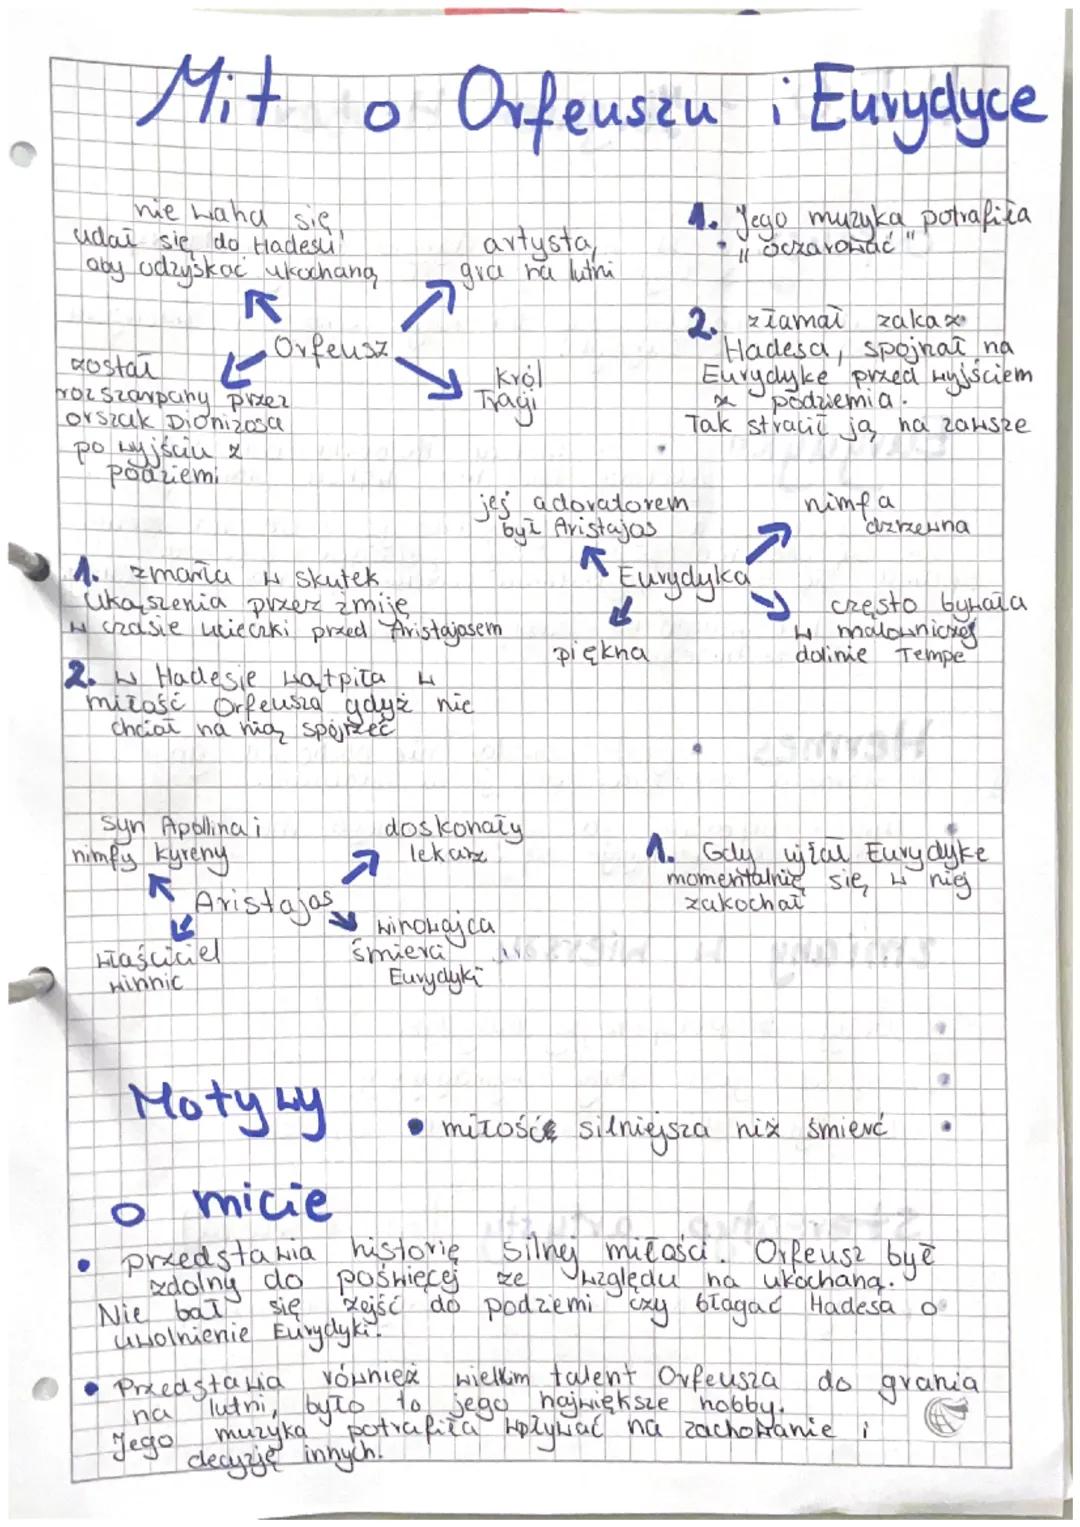 Mit o Orfeuszu i Eurydyce
nie waha się
udać się do Hadesu,
aby odzyskać ukochaną
artysta,
gra na lutni
Orfeusz
został
rozszarpany przez
orszak Dionizosa
po wyjściu z
podziemi
król
Tragi
1. Jego muzyka potrafiła
"oczarować"
2. złamał zakaz
Hadesa, spojrzał na
Eurydykę przed wyjściem
z podziemia.
Tak stracił ją na zawsze
jej adoratorem
był Aristajos
nimfa
drzewna
Eurydyka
piękna
często bywała
w malowniczej
dolinie Tempe
1. zmarła w skutek
ukąszenia przez żmiję
w czasie ucieczki przed Aristajosem
2. w Hadesie wątpiła w
miłość Orfeusza gdyż nie
chciał na nią spójrzeć
syn Apollina i
nimfy Kyreny
doskonały
lekarz
Aristajos
właściciel
winnic
winowajca
śmierci
Eurydyki
1. Gdy ujżał Eurydykę
momentalnie się w niej
zakochał
Motywy
• miłość silniejsza niż śmierć
o micie
• przedstawia historię silnej miłości. Orfeusz był
zdolny do poświęcej ze względu na ukochaną.
Nie bał się zejść do podziemi czy błagać Hadesa o
uwolnienie Eurydyki.
• Przedstawia również wielkim talent Orfeusza do grania
na lutni, było to jego największe hobby.
Jego muzyka potrafiła wpływać na zachowanie i
decyzję innych.